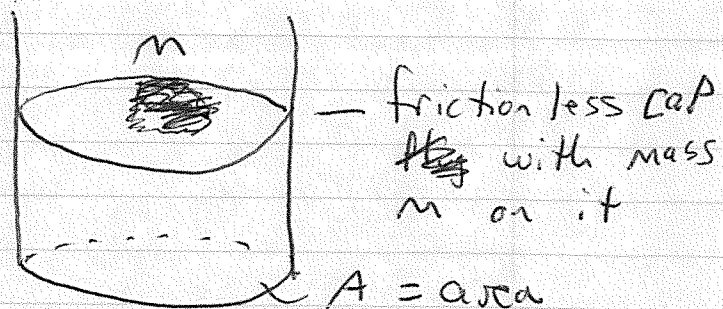 m
— frictionless cap
with mass
m on it
A = area